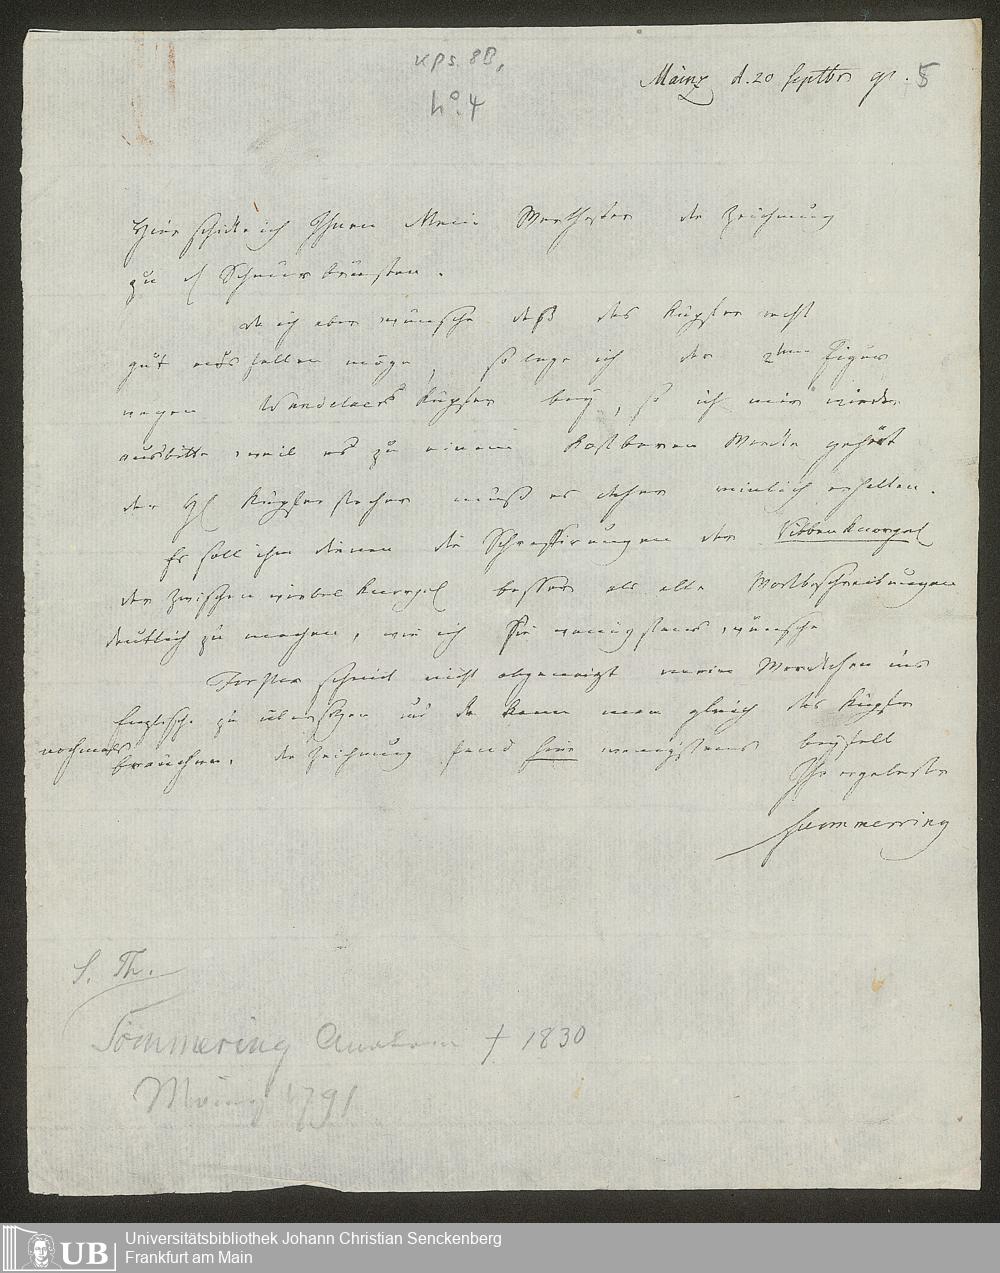 Kps. 8B,
No. 4
Mainz d. 20 Septbr 91. 5
Hier schicke ich Ihnen Mein Werthester die Zeichnung
zu d Schnürbrüsten.
da ich aber wünsche daß das Kupfer recht
gut ausfallen möge, so lege ich der 2ten Figur
wegen Wandelaers Kupfer bey, so ich mir wieder
ausbitte weil es zu einem kostbaren Wercke gehört
der H Kupferstecher muß es daher reinlich erhalten.
Er soll ihm dienen die Schraffirungen der Ribbenknorpel
der Zwischenwirbel Knorpel besser als alle Wortbeschreibungen
deutlich zu machen, wie ich Sie wenigstens wünsche
Forster scheint nicht abgeneigt mein Werckchen ins
Englische zu übersetzen und da kann man gleich das Kupfer
nochmals
brauchen. die Zeichnung fand hier wenigstens beyfall
Ihr ergebenster
Soemmerring
S. Th.
Sömmering Anatom † 1830
Mainz 1791
UB
Universitätsbibliothek Johann Christian Senckenberg
Frankfurt am Main